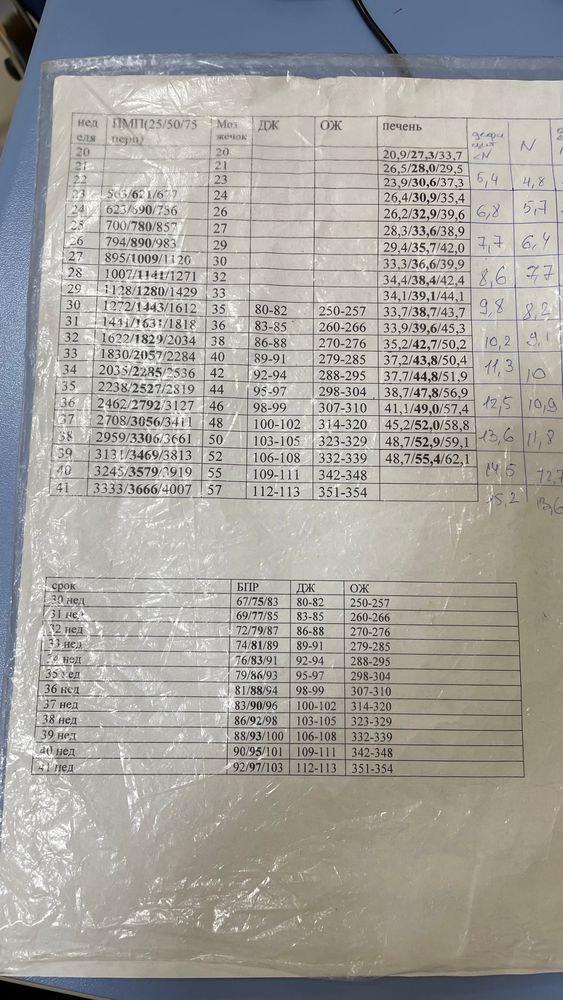 нед ПМП(25/50/75 Моз ДЖ ОЖ печень дефи N
еля перц) жечок цит
<N
20 20 20,9/27,3/33,7
21 21 26,5/28,0/29,5
22 23 23,9/30,6/37,3 5,4 4,8
23 565/621/677 24 26,4/30,9/35,4
24 623/690/756 26 26,2/32,9/39,6 6,8 5,7
25 700/780/857 27 28,3/33,6/38,9
26 794/890/983 29 29,4/35,7/42,0 7,7 6,4
27 895/1009/1120 30 33,3/36,6/39,9
28 1007/1141/1271 32 34,4/38,4/42,4 8,6 7,7
29 1128/1280/1429 33 34,1/39,1/44,1
30 1272/1443/1612 35 80-82 250-257 33,7/38,7/43,7 9,8 8,2
31 1441/1631/1818 36 83-85 260-266 33,9/39,6/45,3
32 1622/1829/2034 38 86-88 270-276 35,2/42,7/50,2 10,2 9,1
33 1830/2057/2284 40 89-91 279-285 37,2/43,8/50,4
34 2035/2285/2536 42 92-94 288-295 37,7/44,8/51,9 11,3 10
35 2238/2527/2819 44 95-97 298-304 38,7/47,8/56,9
36 2462/2792/3127 46 98-99 307-310 41,1/49,0/57,4 12,5 10,9
37 2708/3056/3411 48 100-102 314-320 45,2/52,0/58,8
38 2959/3306/3661 50 103-105 323-329 48,7/52,9/59,1 13,6 11,8
39 3131/3469/3813 52 106-108 332-339 48,7/55,4/62,1
40 3245/3579/3919 55 109-111 342-348 14,5 12,7
41 3333/3666/4007 57 112-113 351-354 15,2 13,6
срок БПР ДЖ ОЖ
30 нед 67/75/83 80-82 250-257
31 нед 69/77/85 83-85 260-266
32 нед 72/79/87 86-88 270-276
33 нед 74/81/89 89-91 279-285
34 нед 76/83/91 92-94 288-295
35 нед 79/86/93 95-97 298-304
36 нед 81/88/94 98-99 307-310
37 нед 83/90/96 100-102 314-320
38 нед 86/92/98 103-105 323-329
39 нед 88/93/100 106-108 332-339
40 нед 90/95/101 109-111 342-348
41 нед 92/97/103 112-113 351-354